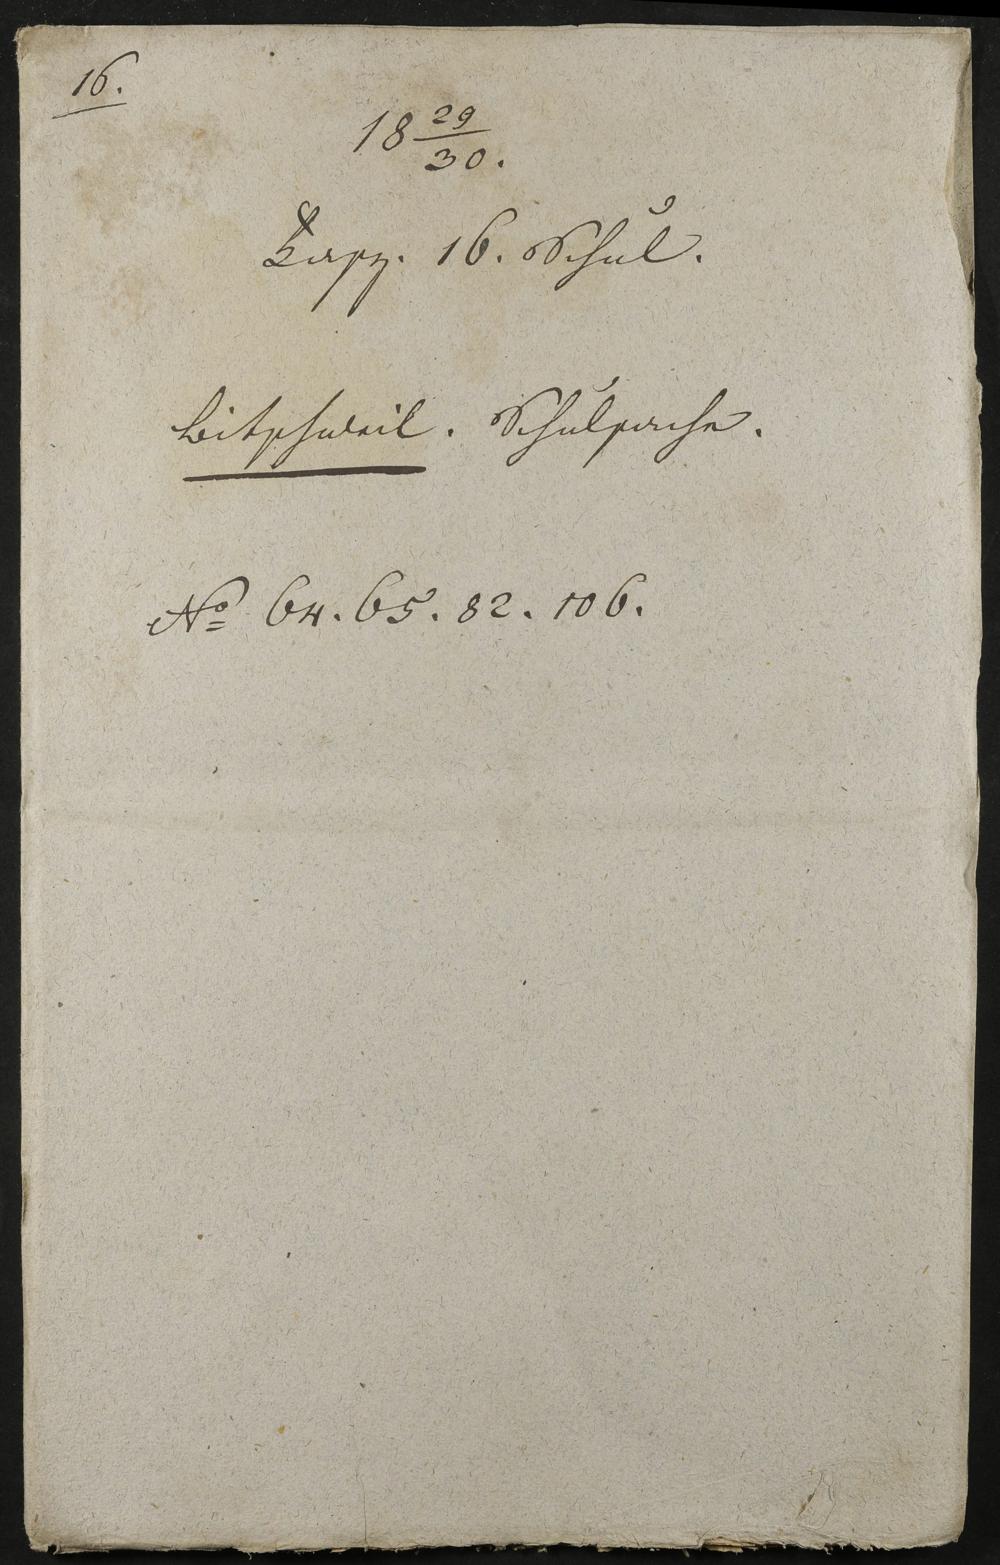 16.
18 29/30.
Kapz. 16. Schul.
Bitschweil. Schulsache.
No 64. 65. 82. 106.